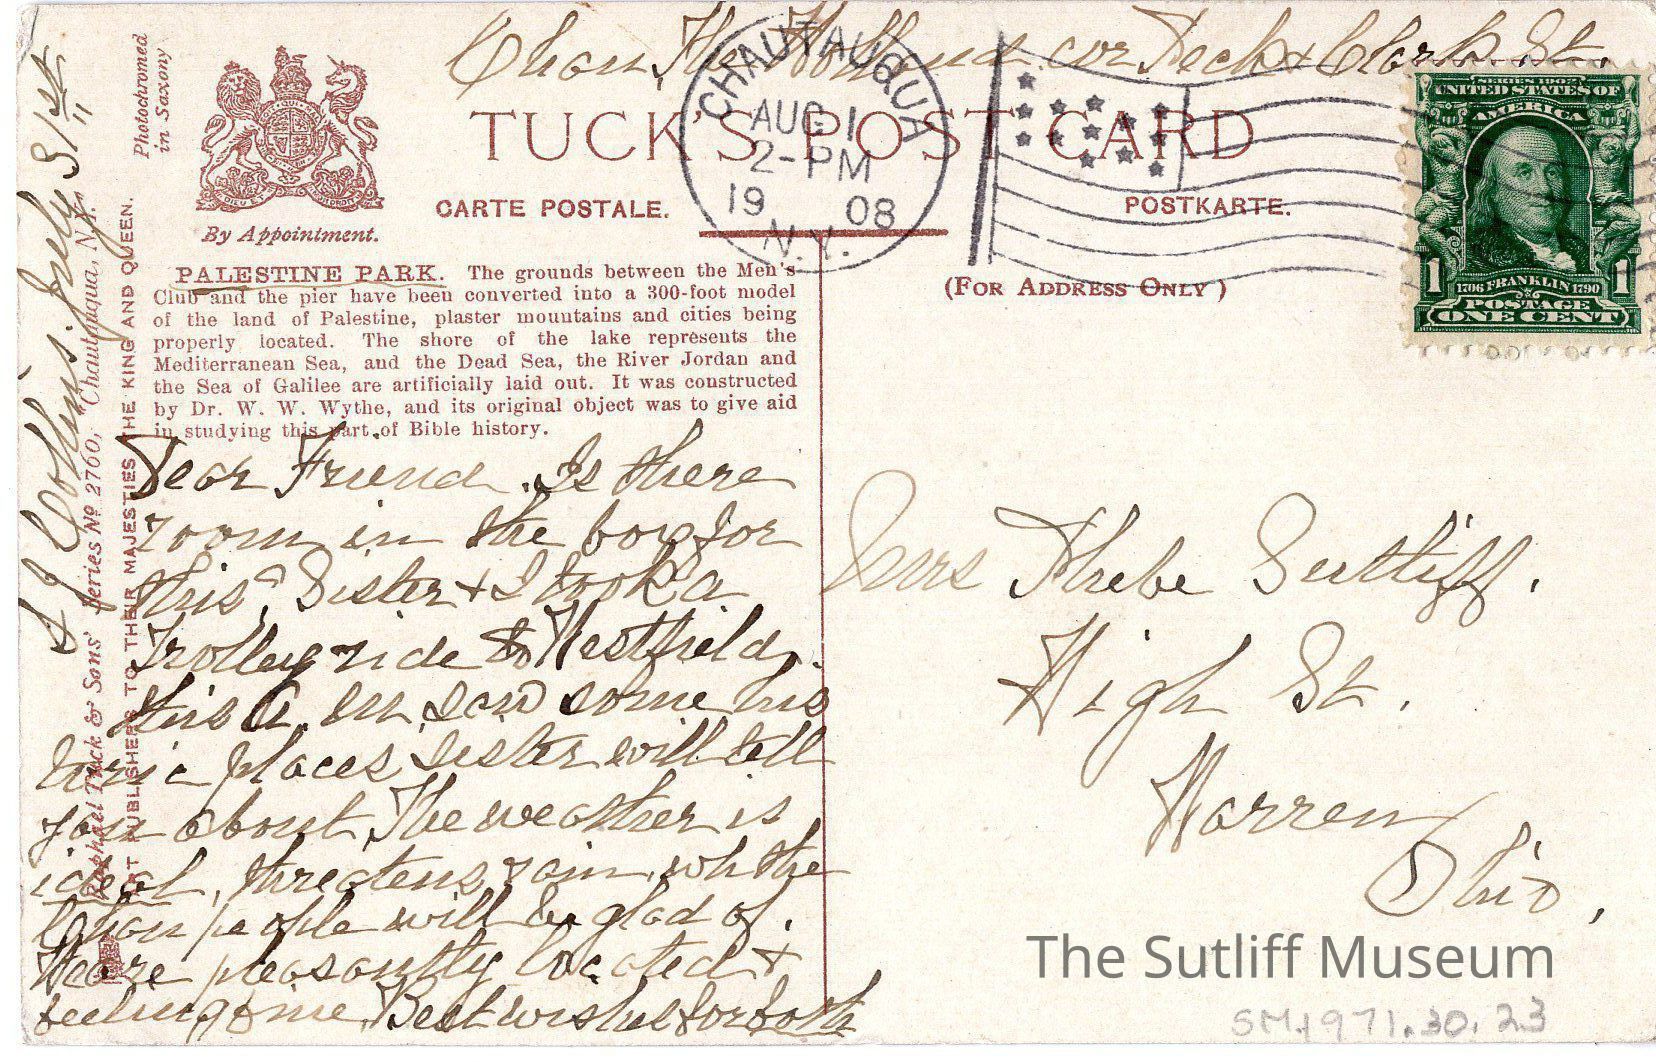 Chau, The Holland cor Peck & Clark St.
CHAUTAUQUA
AUG 1
2-PM
1908
N.Y.
SERIES 1902
UNITED STATES OF
AMERICA
1706 FRANKLIN 1790
1 1
POSTAGE
ONE CENT
Photochromed
in Saxony
By Appointment.
TUCK'S POST CARD
CARTE POSTALE.
POSTKARTE.
(FOR ADDRESS ONLY)
PALESTINE PARK. The grounds between the Men's
Club and the pier have been converted into a 300-foot model
of the land of Palestine, plaster mountains and cities being
properly located. The shore of the lake represents the
Mediterranean Sea, and the Dead Sea, the River Jordan and
the Sea of Galilee are artificially laid out. It was constructed
by Dr. W. W. Wythe, and its original object was to give aid
in studying this part of Bible history.
Raphael Tuck & Sons' Series No 2700, "Chautauqua, N.Y."
ART PUBLISHERS TO THEIR MAJESTIES THE KING AND QUEEN.
Dear Friend. Is there
room in the box for
this? Sister & I took a
Trolley ride to Westfield,
this A.M. saw some his
toric places sister will tell
you about, The weather is
ideal, threatens rain, wh the
Chau people will be glad of.
We are pleasantly located &
feeling fine. Best wishes for both
July 31st
Mrs Phebe Sutliff.
High St.
Warren
Ohio,
The Sutliff Museum
SM1971.30.23